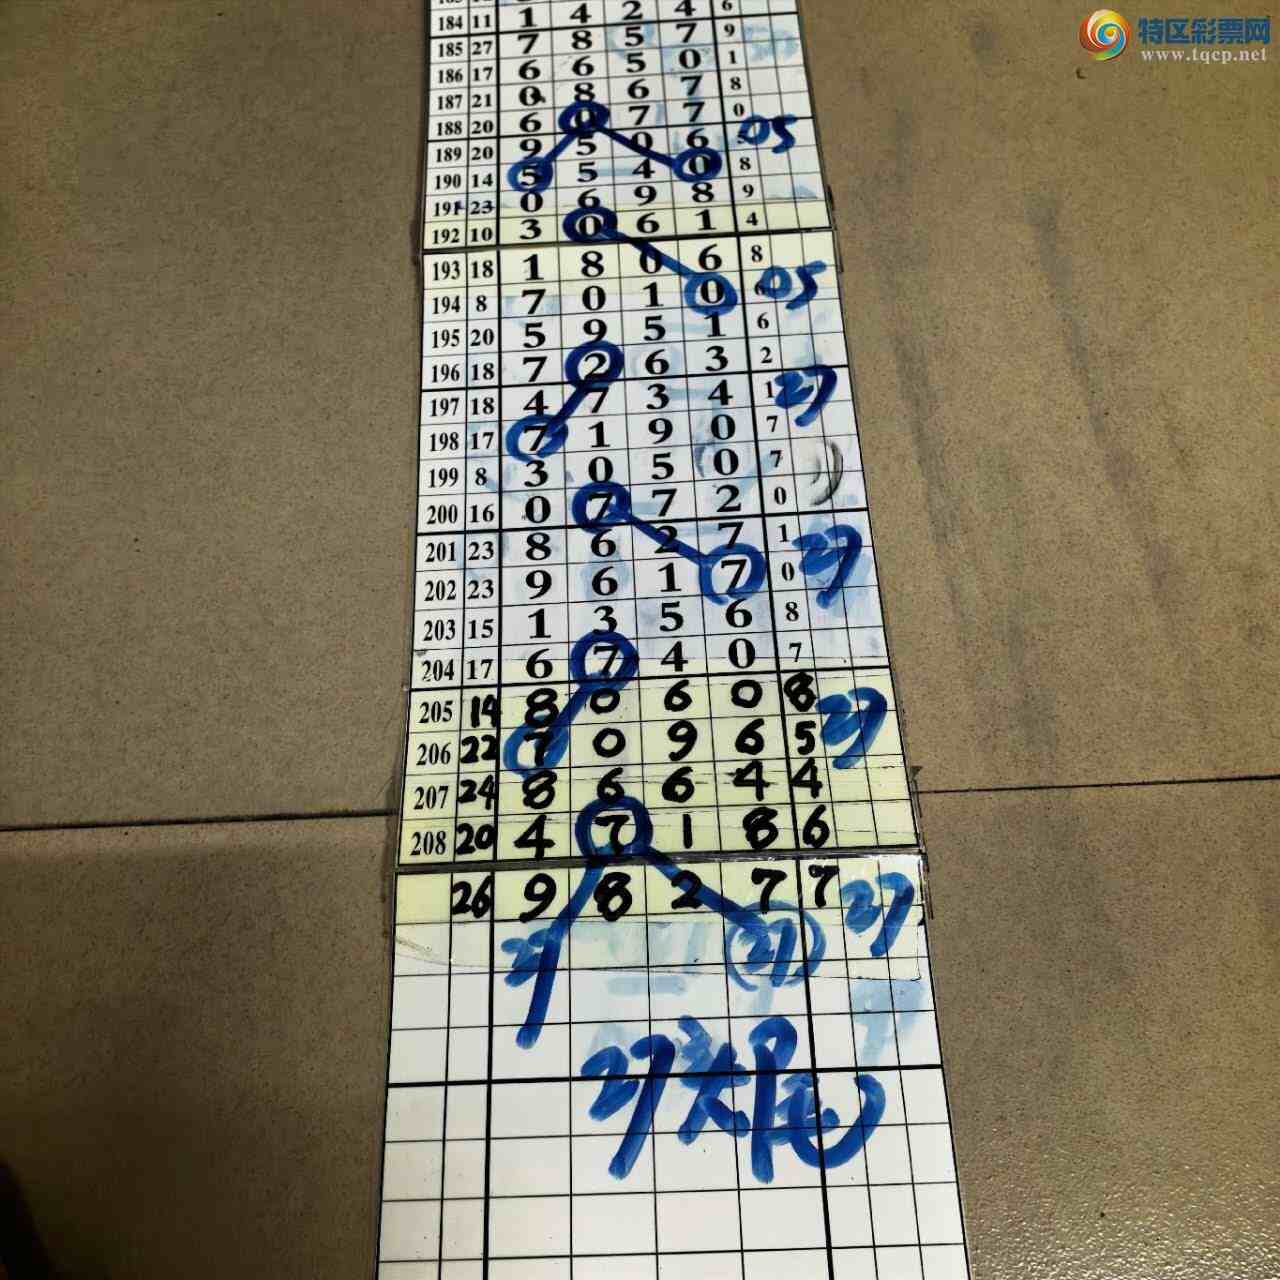 特区彩票网
www.tqcp.net
184 11 1 4 2 4 6
185 27 7 8 5 7 9
186 17 6 6 5 0 1
187 21 0 8 6 7 8
188 20 6 0 7 7 0
05
189 20 9 5 0 6
190 14 5 5 4 0 8
191 23 0 6 9 8 9
192 10 3 0 6 1 4
193 18 1 8 0 6 8
194 8 7 0 1 0 6 05
195 20 5 9 5 1 6
196 18 7 2 6 3 2
197 18 4 7 3 4 1 27
198 17 7 1 9 0 7
199 8 3 0 5 0 7
200 16 0 7 7 2 0
201 23 8 6 2 7 1 27
202 23 9 6 1 7 0
203 15 1 3 5 6 8
204 17 6 7 4 0 7
205 14 8 0 6 0 8 27
206 22 7 0 9 6 5
207 24 8 6 6 4 4
208 20 4 7 1 8 6
26 9 8 2 7 7 27
27
27头尾